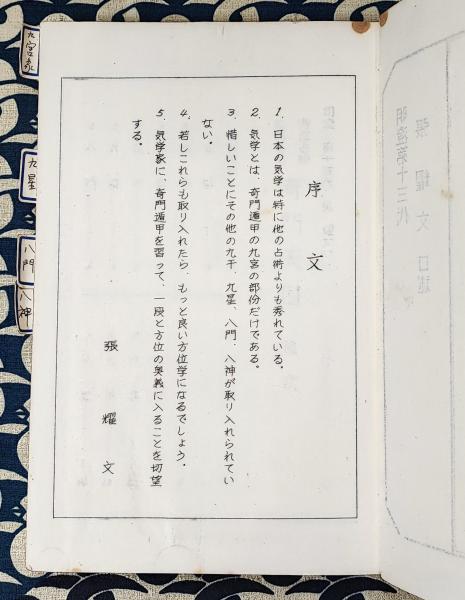 序文
1. 日本の気学は特に他の占術よりも秀れている。
2. 気学とは、奇門遁甲の九宮の部份だけである。
3. 惜しいことにその他の九干、九星、八門、八神が取り入れられてい
ない。
4. 若しこれらも取り入れたら、もっと良い方位学になるでしょう。
5. 気学家に、奇門遁甲を習って、一段と方位の奥義に入ることを切望
する。
張耀文
九宮
九星
八門
八神
明澄第十三代
張耀文口述